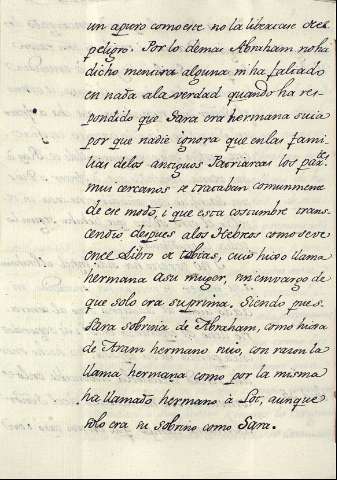 un apuro como ese no la libertase del
peligro. Por lo demas Abraham no ha
dicho mentira alguna ni ha faltado
en nada a la verdad quando ha res-
pondido que Sara era hermana suia
por que nadie ignora que en las fami-
lias de los antiguos Patriarcas los par.tes
mas cercanos se trataban comunmente
de ese modo, i que esta costumbre trans-
cendio despues a los Hebreos como se ve
en el Libro de tobias, cuio hijo llama
hermana a su muger, sin embargo de
que solo era su prima. Siendo pues
Sara sobrina de Abraham, como hija
de Aram hermano suio, con razon la
llama hermana como por la misma
ha llamado hermano à Lot, aunque
solo era su sobrino como Sara.